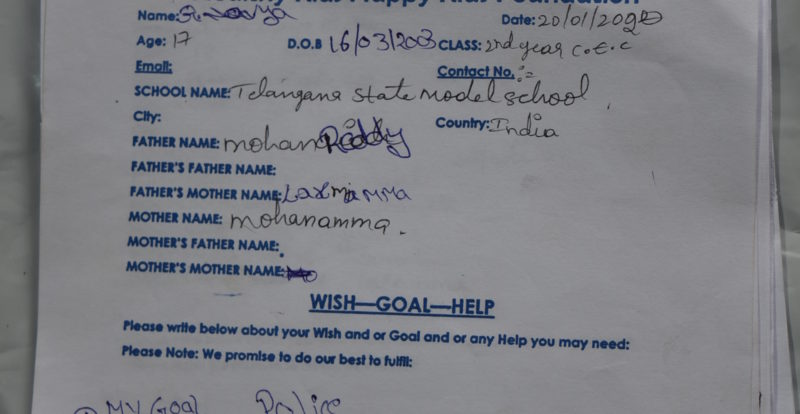 Healthy Kids Happy Kids Foundation
Name: Date: 20/01/2020
Age: 17 D.O.B 16/03/2003 CLASS: 2nd year C.E.C
Email: Contact No. :-
SCHOOL NAME: Telangana state model school
City: Country: India
FATHER NAME: mohan Reddy
FATHER'S FATHER NAME:
FATHER'S MOTHER NAME: Laxmiamma
MOTHER NAME: mohanamma.
MOTHER'S FATHER NAME:
MOTHER'S MOTHER NAME:
WISH—GOAL—HELP
Please write below about your Wish and or Goal and or any Help you may need:
Please Note: We promise to do our best to fulfil:
My Goal Police